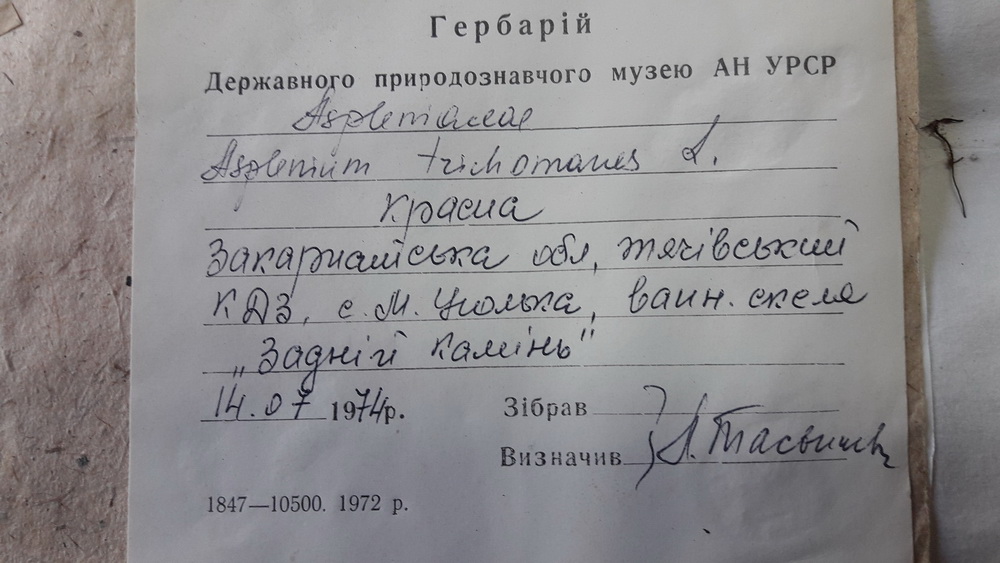 Гербарій
Державного природознавчого музею АН УРСР
Aspleniaceae
Asplenium trichomanes L.
Красна
Закарпатська обл, Тячівський
КДЗ, с. М. Уголька, вапн. скеля
„Задній камінь"
14.07 1974р.
Зібрав
Визначив Л. Тасєнкевич
1847—10500. 1972 р.